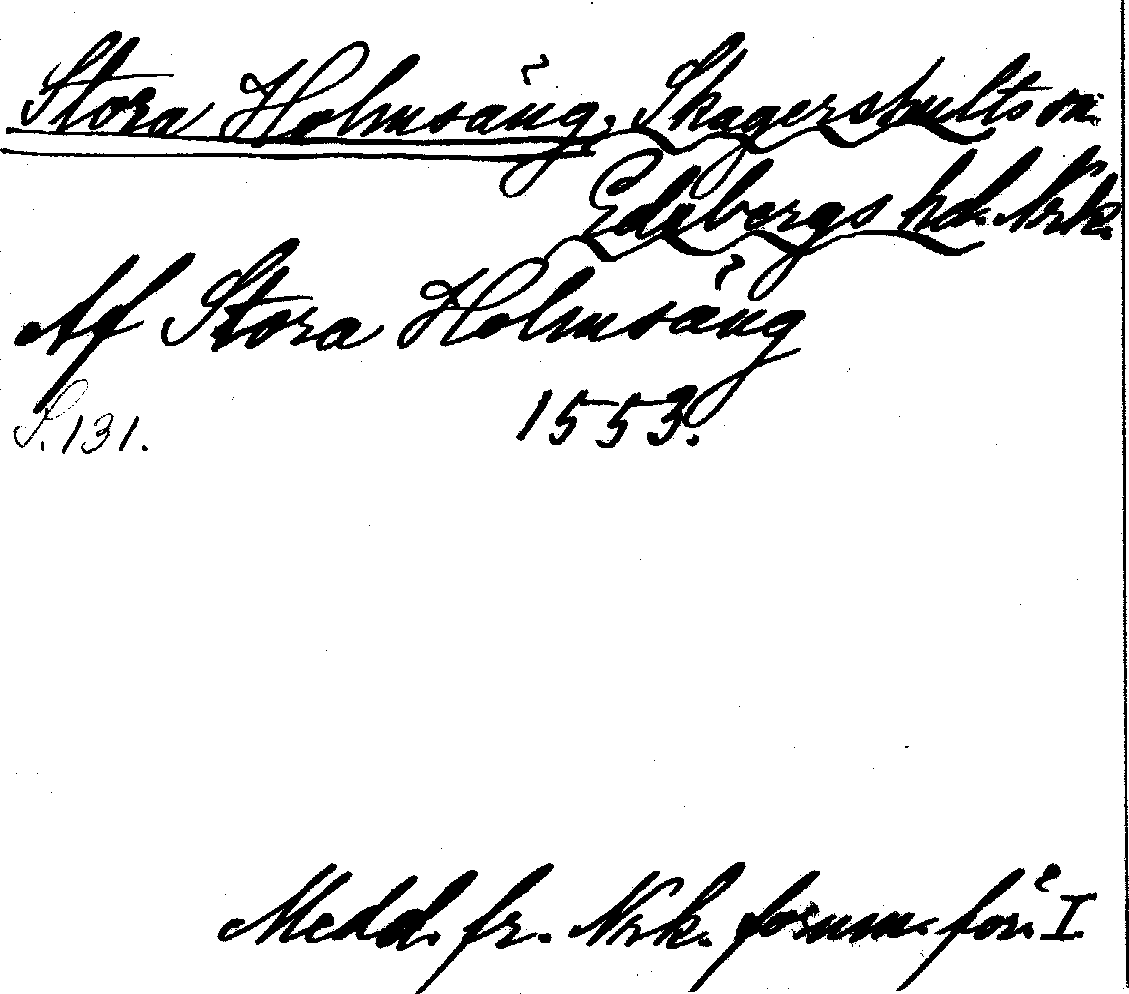 Stora Holmsäng, Skagershults sn.
Edsbergs hd. Nrk.
Af Stora Holmsäng
S. 131. 1553.
Medd. fr. Nrk. fornm. för. I.